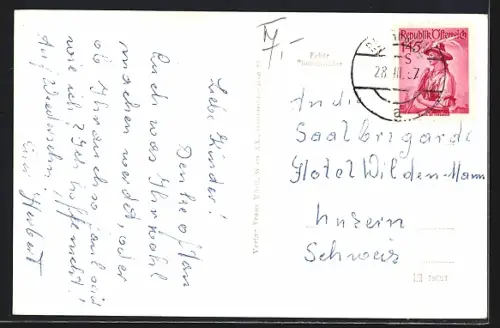 Liebe Kinder!
Denke oft an
Euch was Ihr wohl
machen werdet, oder
ob Ihr auch so faul seid
wie ich? Ich hoffe nicht!
Auf Wiedersehn!
Euer Herbert
7,-
Echte
Republik Österreich
145
S
28.III.
a
An die
Saalbrigarde
Hotel Wilden-Mann
Luzern
Schweiz